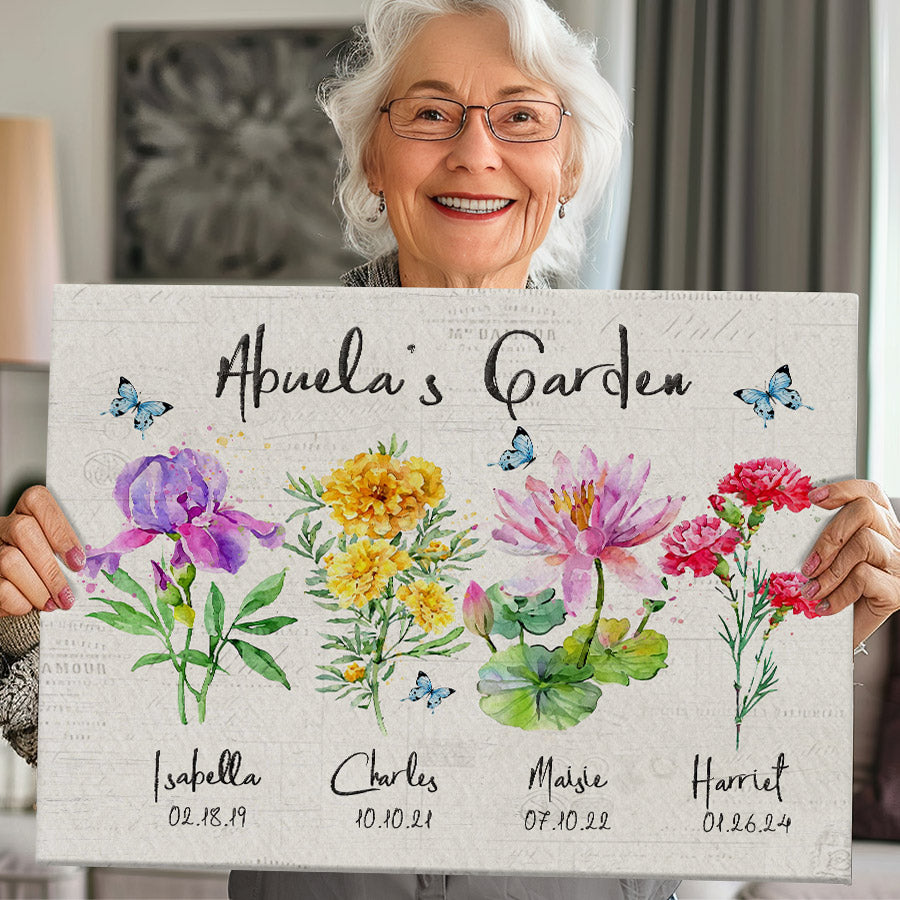 Abuela's Garden
Isabella Charles Maisie Harriet
02.18.19 10.10.21 07.10.22 01.26.24